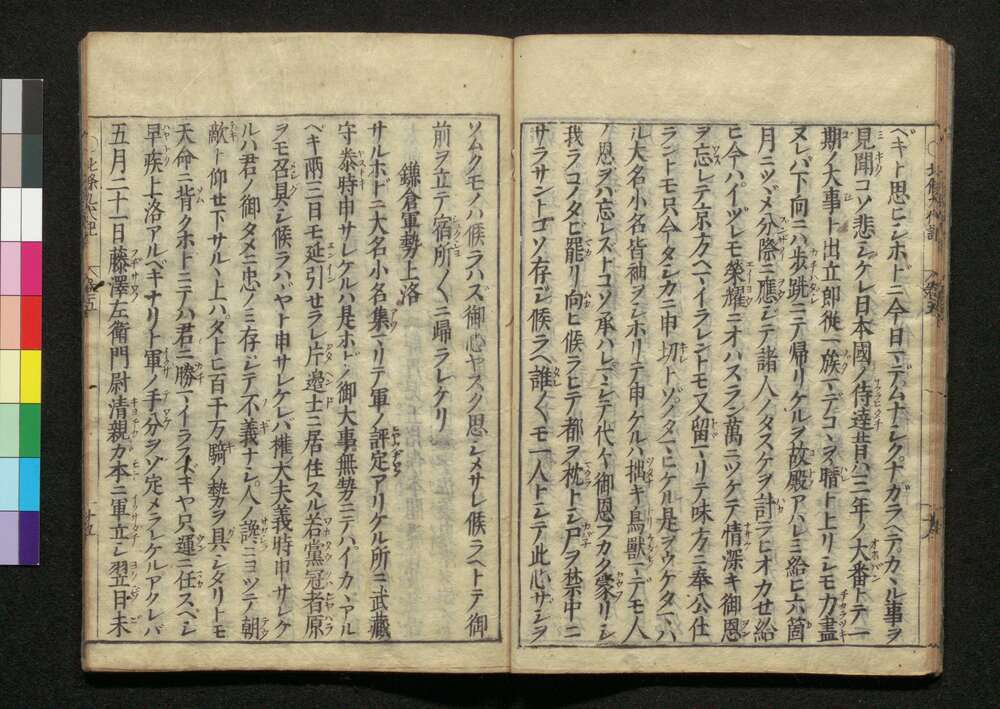 ベキト思ヒシホドニ今日マデムナシクナガラヘテカヽル事ヲ
見聞コソ悲シケレ日本國ノ侍達昔ハ三年ノ大番トテ一
期ノ大事ト出立郎従一族マデコヽヲ晴ト上リシモ力盡
ヌレバ下向ニハ歩跣ニテ帰リケルヲ故殿アハレミ給ヒ六箇
月ニツヾメ分際ニ應シテ諸人ノタスケヲ計ラヒオカせ給
ヒ今ハイヅレモ榮耀ニオハスラン萬ニツケテ情深キ御恩
ヲ忘レテ京方ヘマイラレントモ又留マリテ味方ニ奉公仕
ラントモ只今タシカニ申切トゾノタマヒケル是ヲウケタマハ
ル大名小名皆袖ヲシホリテ申ケルハ拙キ鳥獣マデモ人
ノ恩ヲハ忘レズトコソ承ハレマシテ代々御恩ラカク蒙リシ
我ラコノタビ罷リ向ヒ候ラヒテ都ヲ枕トシ尸ヲ禁中ニ
サラサントコソ存ジ候ラヘ誰々モ一人トシテ此心ザシヲ
ソムクモノハ候ラハズ御心ヤスク思シメサレ候ラヘトテ御
前ヲ立テ宿所々々ニ帰ラレケリ
鎌倉軍勢上洛
サルホドニ大名小名集マリテ軍ノ評定アリケル所ニ武藏
守泰時申サレケルハ是ホドノ御大事無勢ニテハイカヽアル
ベキ両三日モ延引せラレ片邉土ニ居住スル若黨冠者原
ヲモ召具シ候ラハヾヤト申サレケレバ権大夫義時申サレケ
ルハ君ノ御タメニ忠ノミ存ジテ不義ナシ人ノ讒ニヨツテ朝
敵ト仰せ下サルヽ上ハタトヒ百千万騎ノ勢ヲ具シタリトモ
天命ニ背クホトニテハ君ニ勝マイラスベキヤ只運ニ任スベシ
早疾上洛アルベキナリト軍ノ手分ヲゾ定メラレケルアクレバ
五月二十一日藤澤左衛門尉清親カ本ニ軍立シ翌日未